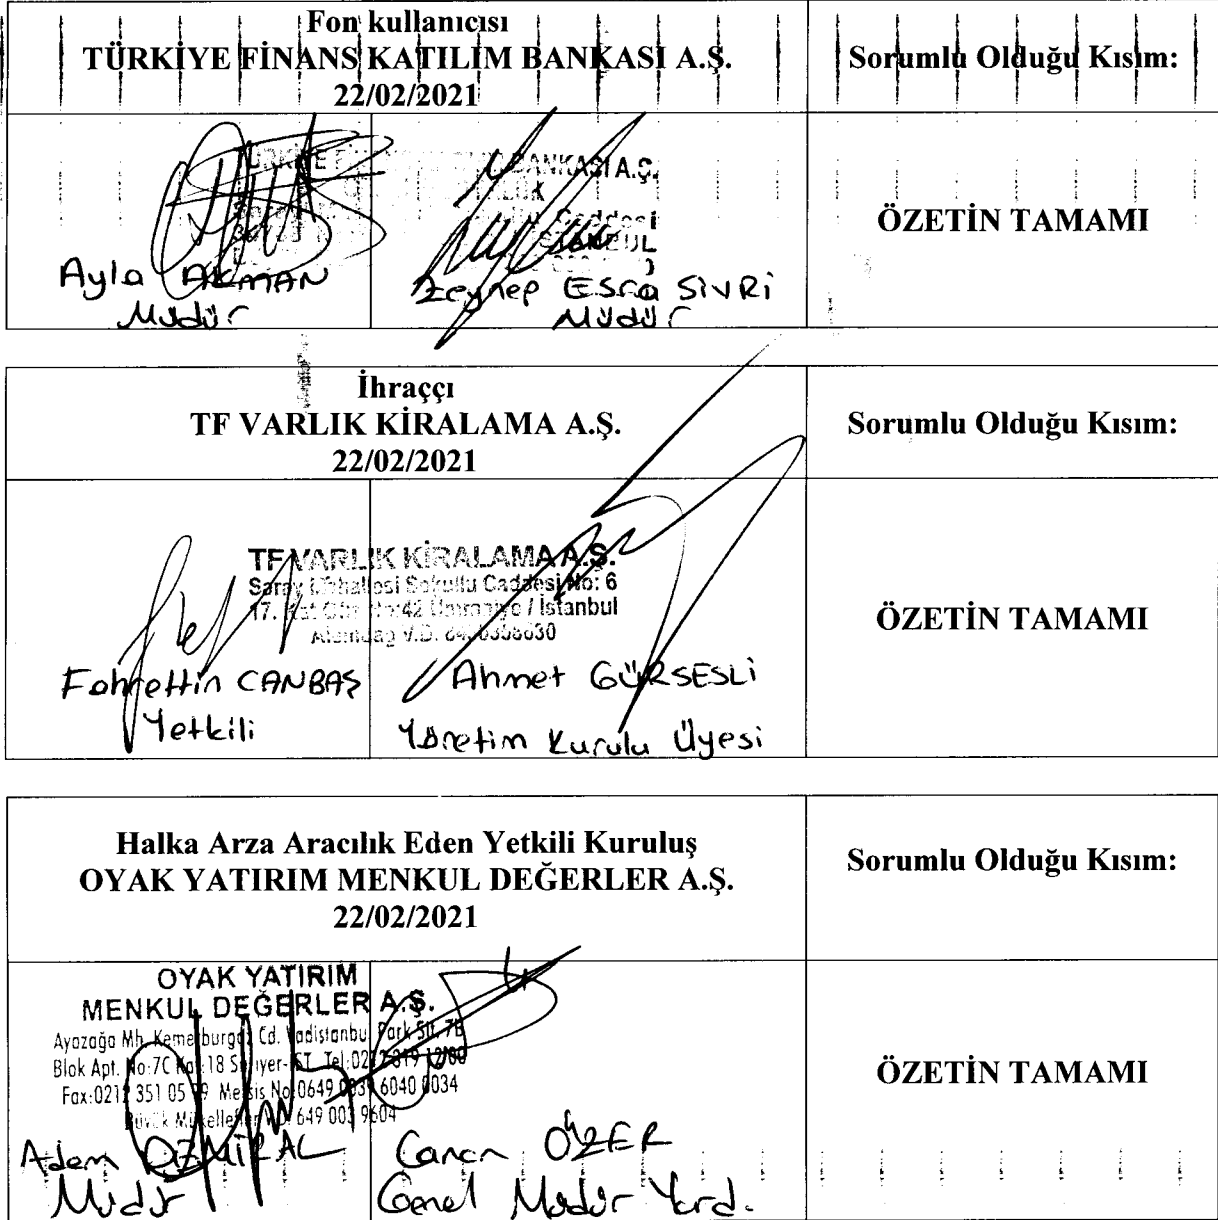 Fon kullanıcısı
TÜRKİYE FİNANS KATILIM BANKASI A.Ş.
22/02/2021
Sorumlu Olduğu Kısım:
BANKASI A.Ş.
Caddesi
İSTANBUL
Ayla AKMAN
Müdür
Zeynep Esra SİVRİ
Müdür
ÖZETİN TAMAMI
İhraççı
TF VARLIK KİRALAMA A.Ş.
22/02/2021
Sorumlu Olduğu Kısım:
TF VARLIK KİRALAMA A.Ş.
Saray Mahallesi Sokullu Caddesi No: 6
17. Kat Ümraniye / İstanbul
Alemdağ V.D.
Fahrettin CANBAŞ
Yetkili
Ahmet GÜRSESLİ
Yönetim Kurulu Üyesi
ÖZETİN TAMAMI
Halka Arza Aracılık Eden Yetkili Kuruluş
OYAK YATIRIM MENKUL DEĞERLER A.Ş.
22/02/2021
Sorumlu Olduğu Kısım:
OYAK YATIRIM
MENKUL DEĞERLER A.Ş.
Ayazağa Mh. Kemerburgaz Cd. Vadistanbul Park Sit. 7B
Blok Apt. No:7C Kat:18 Sarıyer-İST Tel:0212 319 12 00
Fax:0212 351 05 Mersis No:0649 6040 0034
Büyük Mükellefler V.D. 649 003 9604
Adem DEMİRAL
Müdür
Canan ÖZER
Genel Müdür Yard.
ÖZETİN TAMAMI